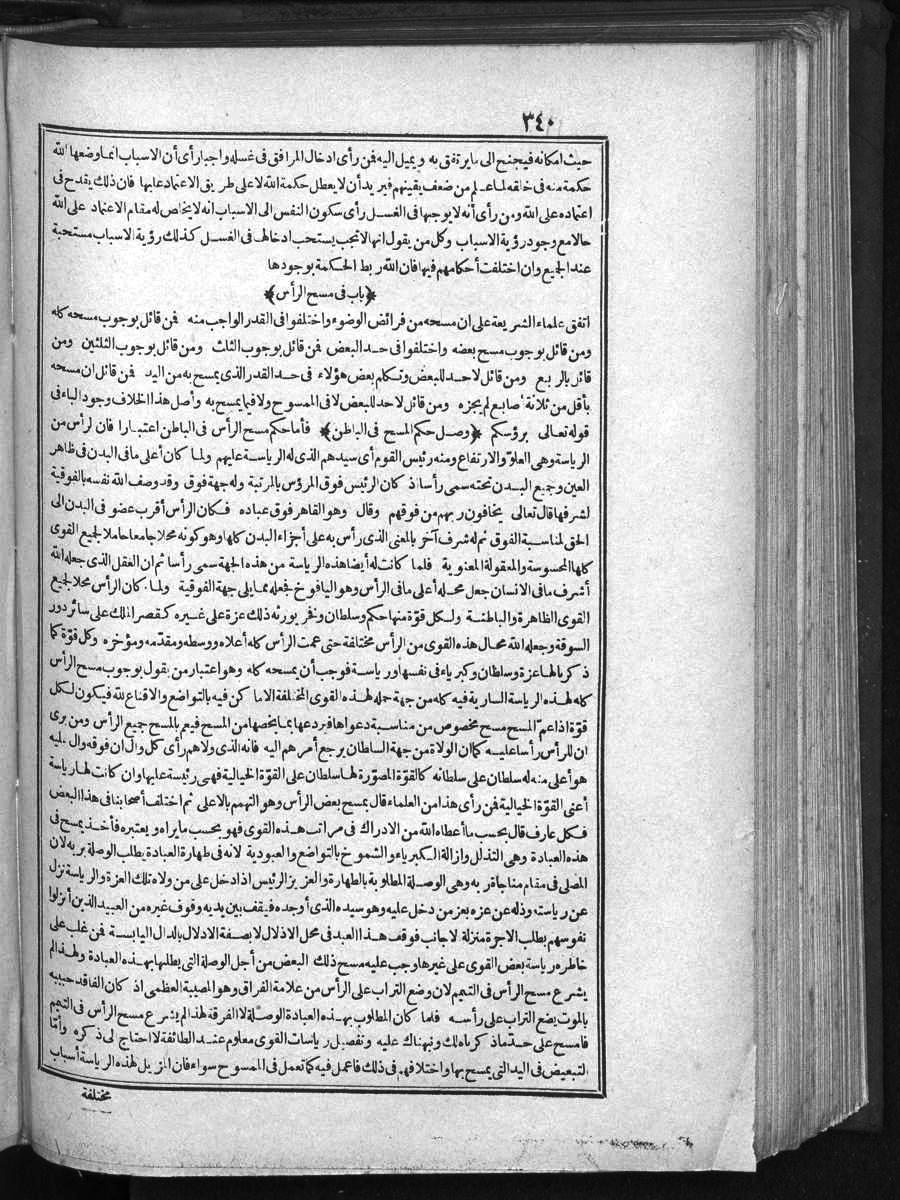 ٣٤٠
حيث امكانه فيجنح الى ما يرتفق به ويميل اليه فمن رأى ادخال المرافق فى غسله واجبا رأى أن الاسباب انما وضعها الله
حكمة منه فى خلقه لما علم من ضعف يقينهم فيريد أن لا يعطل حكمة الله لا على طريق الاعتماد عليها فان ذلك يقدح فى
اعتماده على الله ومن رأى أنه لا يوجبها فى الغسل رأى سكون النفس الى الاسباب انه لا يخلص له مقام الاعتماد على الله
حالا مع وجود رؤية الاسباب وكل من يقول انها لا تجب يستحب ادخالها فى الغسل كذلك رؤية الاسباب مستحبة
عند الجميع وان اختلفت أحكامهم فيها فان الله ربط الحكمة بوجودها
﴿باب فى مسح الرأس﴾
اتفق علماء الشريعة على ان مسحه من فرائض الوضوء واختلفوا فى القدر الواجب منه فمن قائل بوجوب مسحه كله
ومن قائل بوجوب مسح بعضه واختلفوا فى حد البعض فمن قائل بوجوب الثلث ومن قائل بوجوب الثلثين ومن
قائل بالربع ومن قائل لا حد للبعض وتكلم بعض هؤلاء فى حد القدر الذى يمسح به من اليد فمن قائل ان مسحه
بأقل من ثلاثة أصابع لم يجزه ومن قائل لا حد للبعض لا فى الممسوح ولا فيما يمسح به وأصل هذا الخلاف وجود الباء فى
قوله تعالى برؤسكم ﴿وصل حكم المسح فى الباطن﴾ فأما حكم مسح الرأس فى الباطن اعتبارا فان لرأس من
الرياسة وهى العلوّ والارتفاع ومنه رئيس القوم أى سيدهم الذى له الرياسة عليهم ولما كان أعلى ما فى البدن فى ظاهر
العين وجميع البدن تحته سمى رأسا اذ كان الرئيس فوق المرؤس بالمرتبة وله جهة فوق وقد وصف الله نفسه بالفوقية
لشرفها قال تعالى يخافون ربهم من فوقهم وقال وهو القاهر فوق عباده فكان الرأس أقرب عضو فى البدن الى
الحق لمناسبة الفوق ثم له شرف آخر بالمعنى الذى رأس به على أجزاء البدن كلها وهو كونه محلا جامعا حاملا لجميع القوى
كلها المحسوسة والمعقولة المعنوية فلما كانت له أيضا هذه الرياسة من هذه الجهة سمى رأسا ثم ان العقل الذى جعله الله
أشرف ما فى الانسان جعل محله أعلى ما فى الرأس وهو اليافوخ فجعله مما يلى جهة الفوقية ولما كان الرأس محلا لجميع
القوى الظاهرة والباطنة ولكل قوّة منها حكم وسلطان وفخر يورثه ذلك عزة على غيره كقصر الملك على سائر دور
السوقة وجعل الله محال هذه القوى من الرأس مختلفة حتى عمت الرأس كله أعلاه ووسطه ومقدّمه ومؤخره وكل قوّة كما
ذكرنا لها عزة وسلطان وكبرياء فى نفسها ورياسة فوجب أن يمسحه كله وهو اعتبار من يقول بوجوب مسح الرأس
كله لهذه الرياسة السارية فيه كله من جهة حمله لهذه القوى المختلفة الاماكن فيه بالتواضع والاقناع لله فيكون لكل
قوّة اذا عمّ المسح مسح مخصوص من مناسبة دعواها فيردعها بما يخصها من المسح فيعم بالمسح جميع الرأس ومن يرى
ان للرأس رأسا عليه كما ان الولاة من جهة السلطان يرجع أمرهم اليه فانه الذى ولاهم رأى كل وال ان فوقه وال عليه
هو أعلى منه له سلطان على سلطانه كالقوّة المصوّرة لها سلطان على القوّة الخيالية فهى رئيسة عليها وان كانت لها رياسة
أعنى القوّة الخيالية فمن رأى هذا من العلماء قال بمسح بعض الرأس وهو التهمم بالاعلى ثم اختلف أصحابنا فى هذا البعض
فكل عارف قال بحسب ما أعطاه الله من الادراك فى مراتب هذه القوى فهو بحسب ما يراه ويعتبره فأخذ يمسح فى
هذه العبادة وهى التذلل وازالة الكبرياء والشموخ بالتواضع والعبودية لانه فى طهارة العبادة يطلب الوصلة بربه لان
المصلى فى مقام مناجاة ربه وهى الوصلة المطلوبة بالطهارة والعزيز الرئيس اذا دخل على من ولاه تلك العزة والرياسة نزل
عن رياسته وذله عن عزه بعز من دخل عليه وهو سيده الذى أوجده فيقف بين يديه وقوف غيره من العبيد الذين أنزلوا
نفوسهم بطلب الاجرة منزلة لاجانب فوقف هذا العبد فى محل الاذلال لا بصفة الادلال بالدال اليابسة فمن غلب على
خاطره رياسة بعض القوى على غيرها وجب عليه مسح ذلك البعض من أجل الوصلة التى يطلبها بهذه العبادة ولهذا لم
يشرع مسح الرأس فى التيمم لان وضع التراب على الرأس من علامة الفراق وهو المصيبة العظمى اذ كان الفاقد حبيبه
بالموت يضع التراب على رأسه فلما كان المطلوب بهذه العبادة الوصلة لا الفرقة لهذا لم يشرع مسح الرأس فى التيمم
فامسح على حدّ ما ذكرناه لك ونبهناك عليه وتفصيل رياسات القوى معلوم عند الطائفة لا أحتاج الى ذكره وأمّا
التبعيض فى اليد التى يمسح بها واختلافهم فى ذلك فاعمل فيه كما تعمل فى الممسوح سواء فان المزيل لهذه الرياسة أسباب
مختلفة